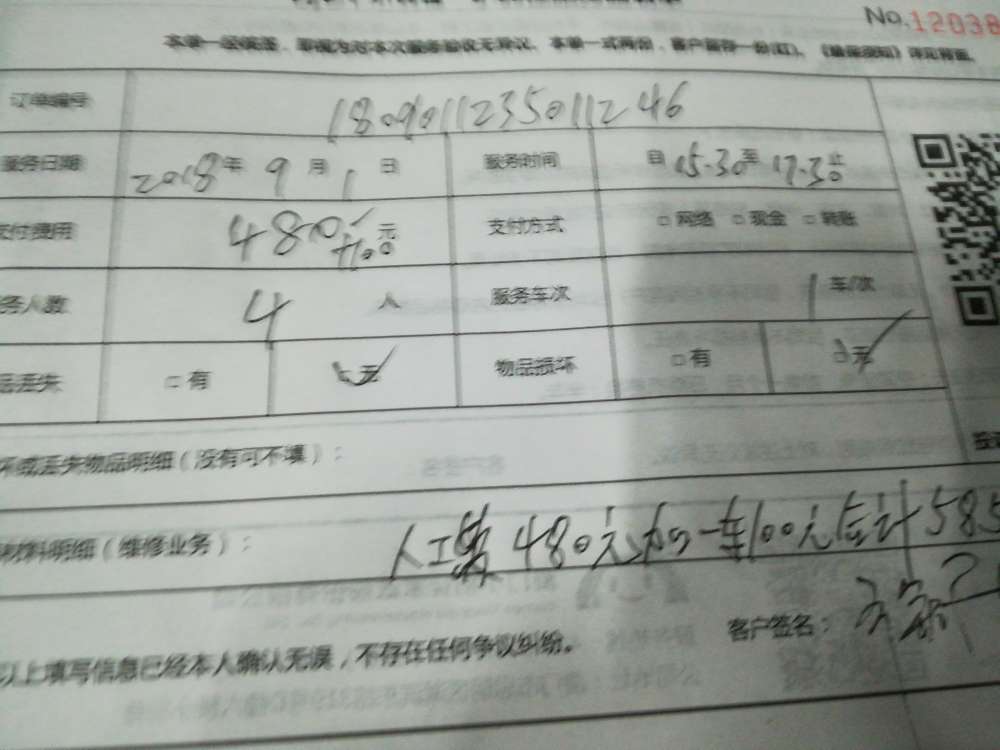 No.12038
本单一经填写，即视为对本次服务验收无异议。本单一式两份，客户留存一份(红)。
订单编号 180901123501124 6
服务日期 2018年 9月 1日 服务时间 自15.30至17.30止
支付费用 480元 +100 支付方式 □ 网络 □ 现金 □ 转账
务人数 4 人 服务车次 1 车/次
品丢失 □ 有 □ 无 物品损坏 □ 有 □ 无
坏或丢失物品明细（没有可不填）：
材料明细（维修业务）： 人工费 480元 加一车100元 合计585
客户签名：
以上填写信息已经本人确认无误，不存在任何争议纠纷。